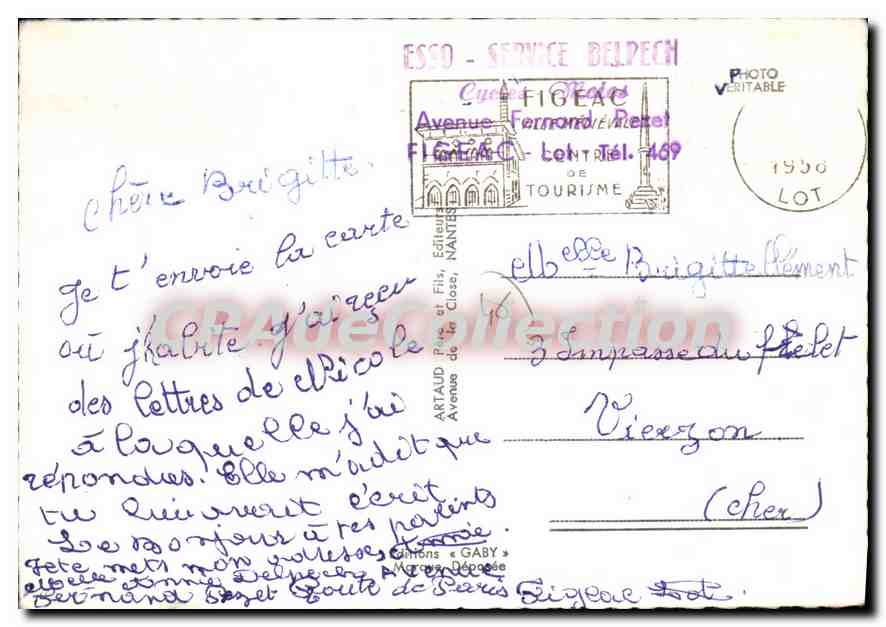 ESSO - SERVICE BELPECH
Cycles - Motos
Avenue Fernand Pezet
FIGEAC - Lot Tél. 469
FIGEAC
VILLE MÉDIÉVALE
CENTRE
DE
TOURISME
1958
LOT
PHOTO
VERITABLE
Chère Brigitte.
Je t'envoie la carte
où j'habite j'ai reçu
des lettres de Nicole
à laquelle j'ai
répondus. Elle m'a dit que
tu lui avait écrit
Le Bonjour à tes parents
Je te mets mon adresse
Annie Belpech Avenue
Fernand Pezet Route de Paris Figeac Lot
ARTAUD Père et Fils, Editeurs
Avenue de la Close, NANTES
Editions « GABY »
Marque Déposée
Melle Brigitte Clément
3 Impasse du
Vierzon
(Cher)
CPAdeCollection